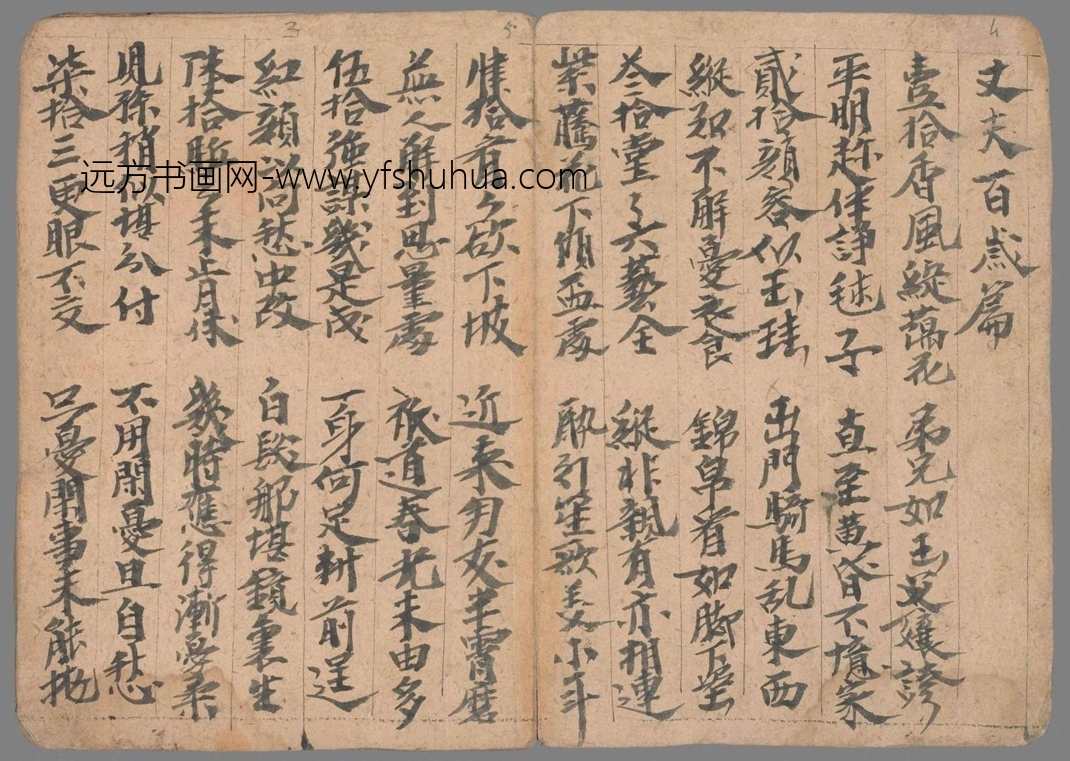 3
5
4
丈夫百歲篇
壹拾香風綻藕花 弟兄如玉父孃誇
平明趂伴諍毬子 直至黄昏不憶家
貳拾顔容似玉珪 出門騎馬乱東西
縱知不解憂衣食 錦帛看如脚下埿
叁拾堂〻六藝全 縱非親有亦相連
紫藤花下傾盃處 酔引笙歌美少年
肆拾看〻欲下坡 近来男女半霄磨
無人解到思量處 祇道春光未由多
伍拾強謀幾是成 一身何足料前逞
紅顔尚愁中改 白髮那堪鏡裏生
陸拾駈〻未肯休 幾時應得漸憂柔
見孫稍似堪分付 不用閑憂且自愁
柒拾三更眼不交 只憂閑事未能抛
远方书画网-www.yfshuhua.com